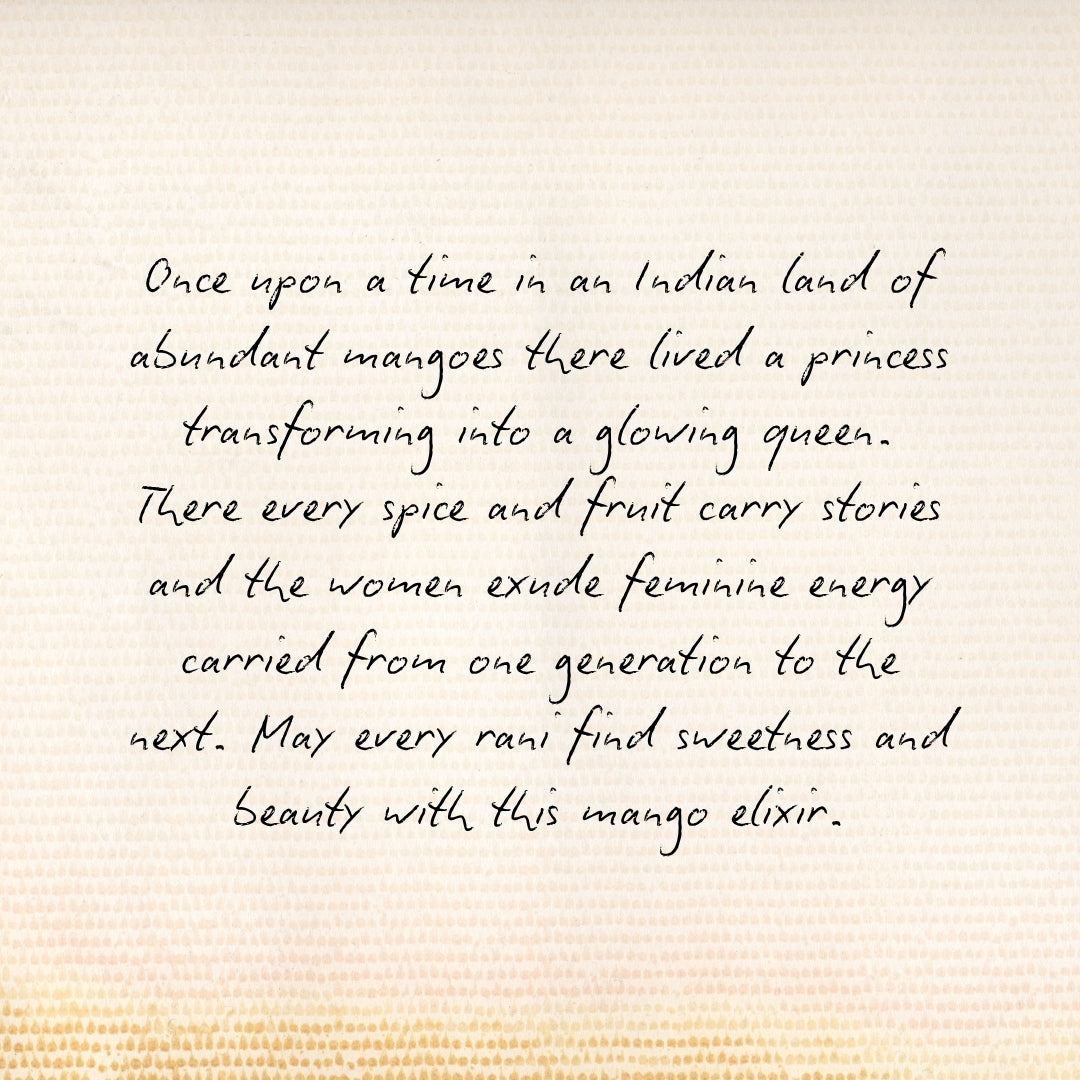 Once upon a time in an Indian land of
abundant mangoes there lived a princess
transforming into a glowing queen.
There every spice and fruit carry stories
and the women exude feminine energy
carried from one generation to the
next. May every rani find sweetness and
beauty with this mango elixir.